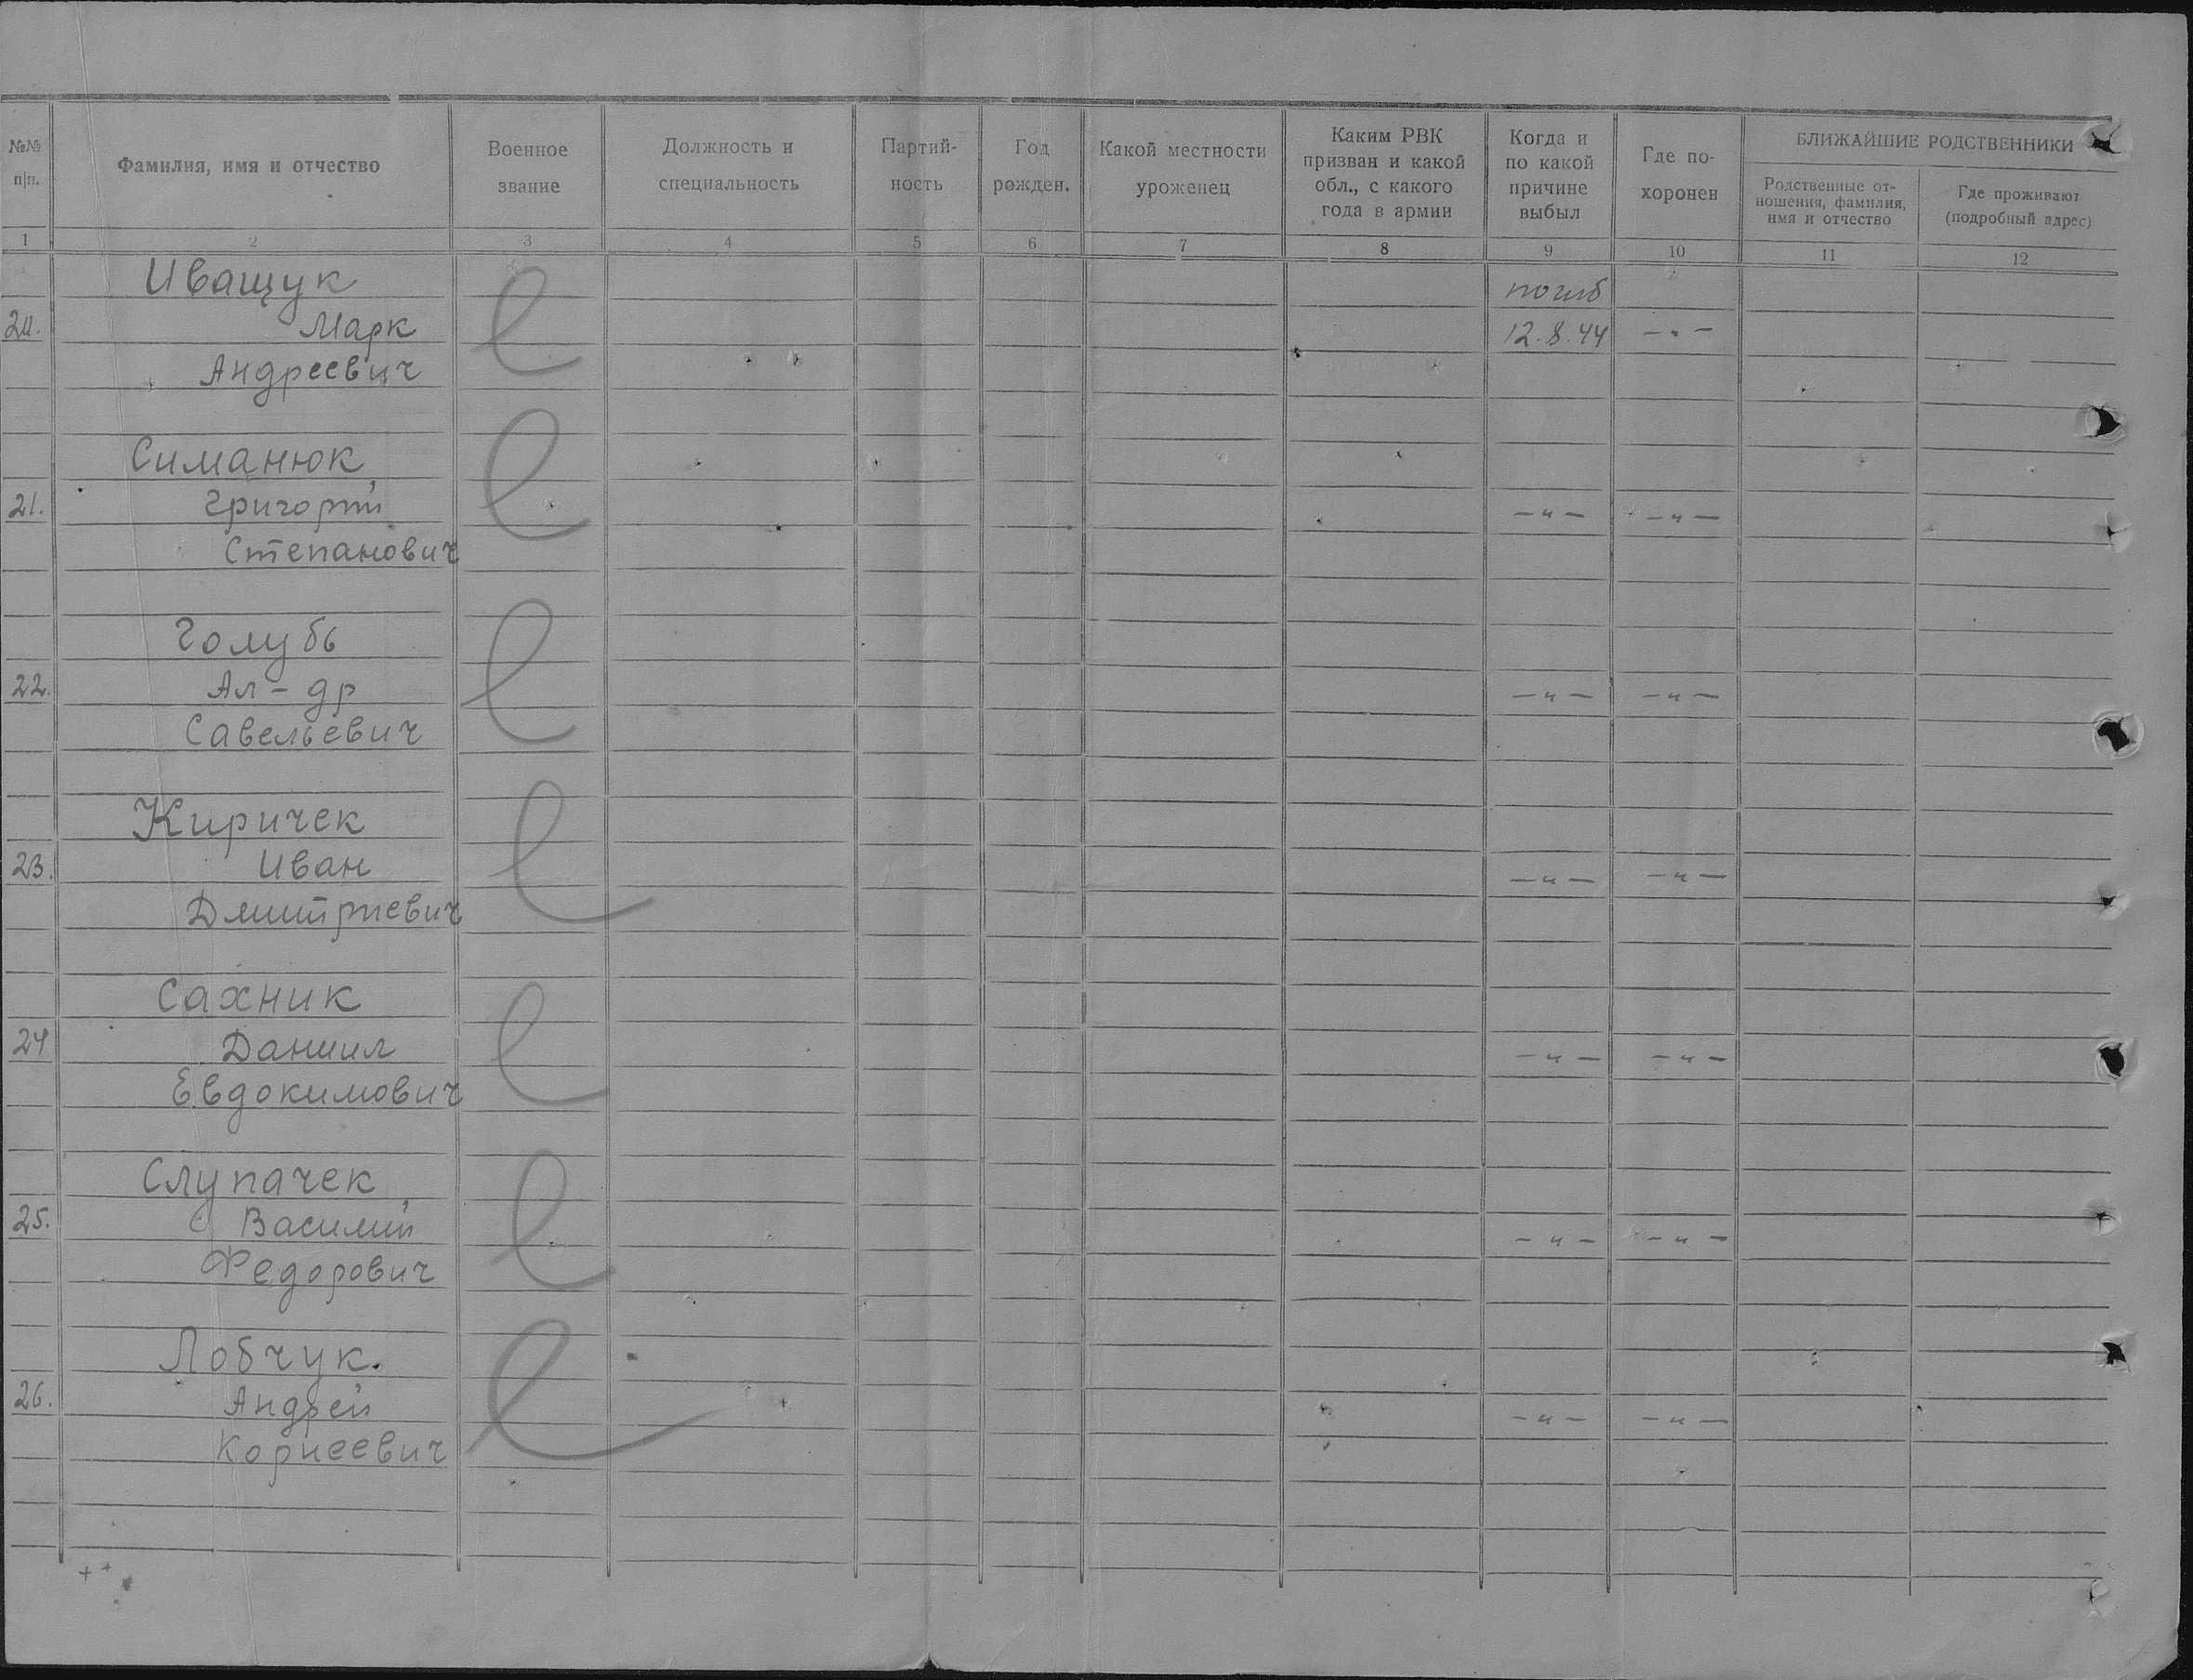 №№ п|п.
Фамилия, имя и отчество
Военное звание
Должность и специальность
Партий-ность
Год рожден.
Какой местности уроженец
Каким РВК призван и какой обл., с какого года в армии
Когда и по какой причине выбыл
Где по-хоронен
БЛИЖАЙШИЕ РОДСТВЕННИКИ
Родственные от-ношения, фамилия, имя и отчество
Где проживают (подробный адрес)
1 2 3 4 5 6 7 8 9 10 11 12
Иващук погиб
20. Марк 12.8.44 -"-
Андреевич
Симанюк
21. Григорий -"- -"-
Степанович
Голубь
22. Ал-др -"- -"-
Савельевич
Киричек
23. Иван -"- -"-
Дмитриевич
Сахник
24 Даниил -"- -"-
Евдокимович
Слупачек
25. Василий -"- -"-
Федорович
Лобчук.
26. Андрей -"- -"-
Корнеевич